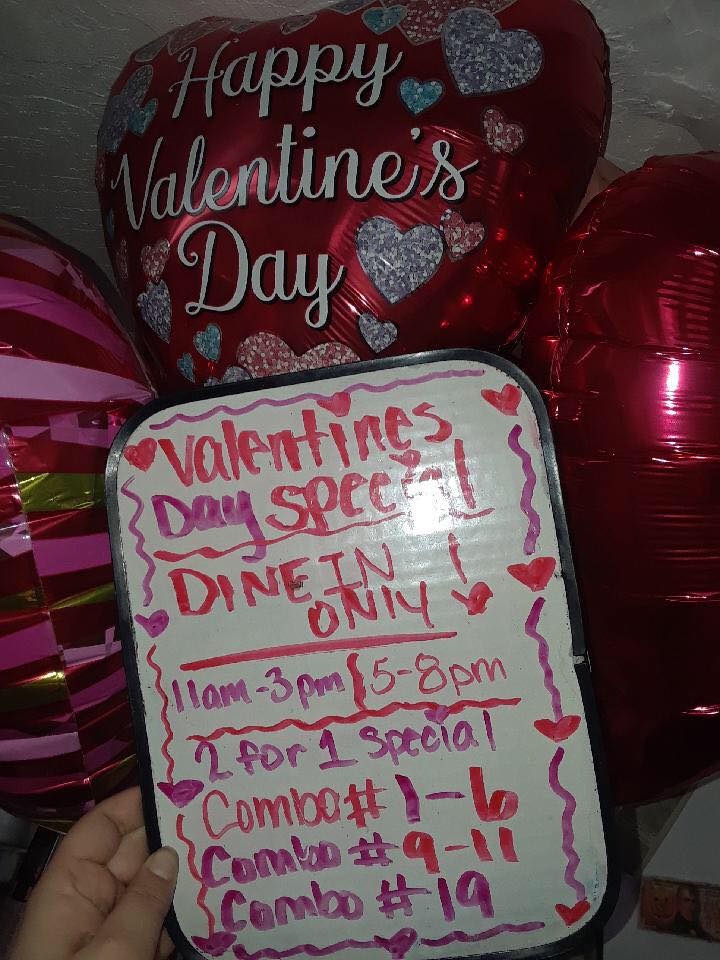 Happy
Valentine's
Day
Valentines
Day special
DINE IN !
ONLY
11am-3pm 5-8pm
2 for 1 special
Combo# 1-6
Combo # 9-11
Combo # 19